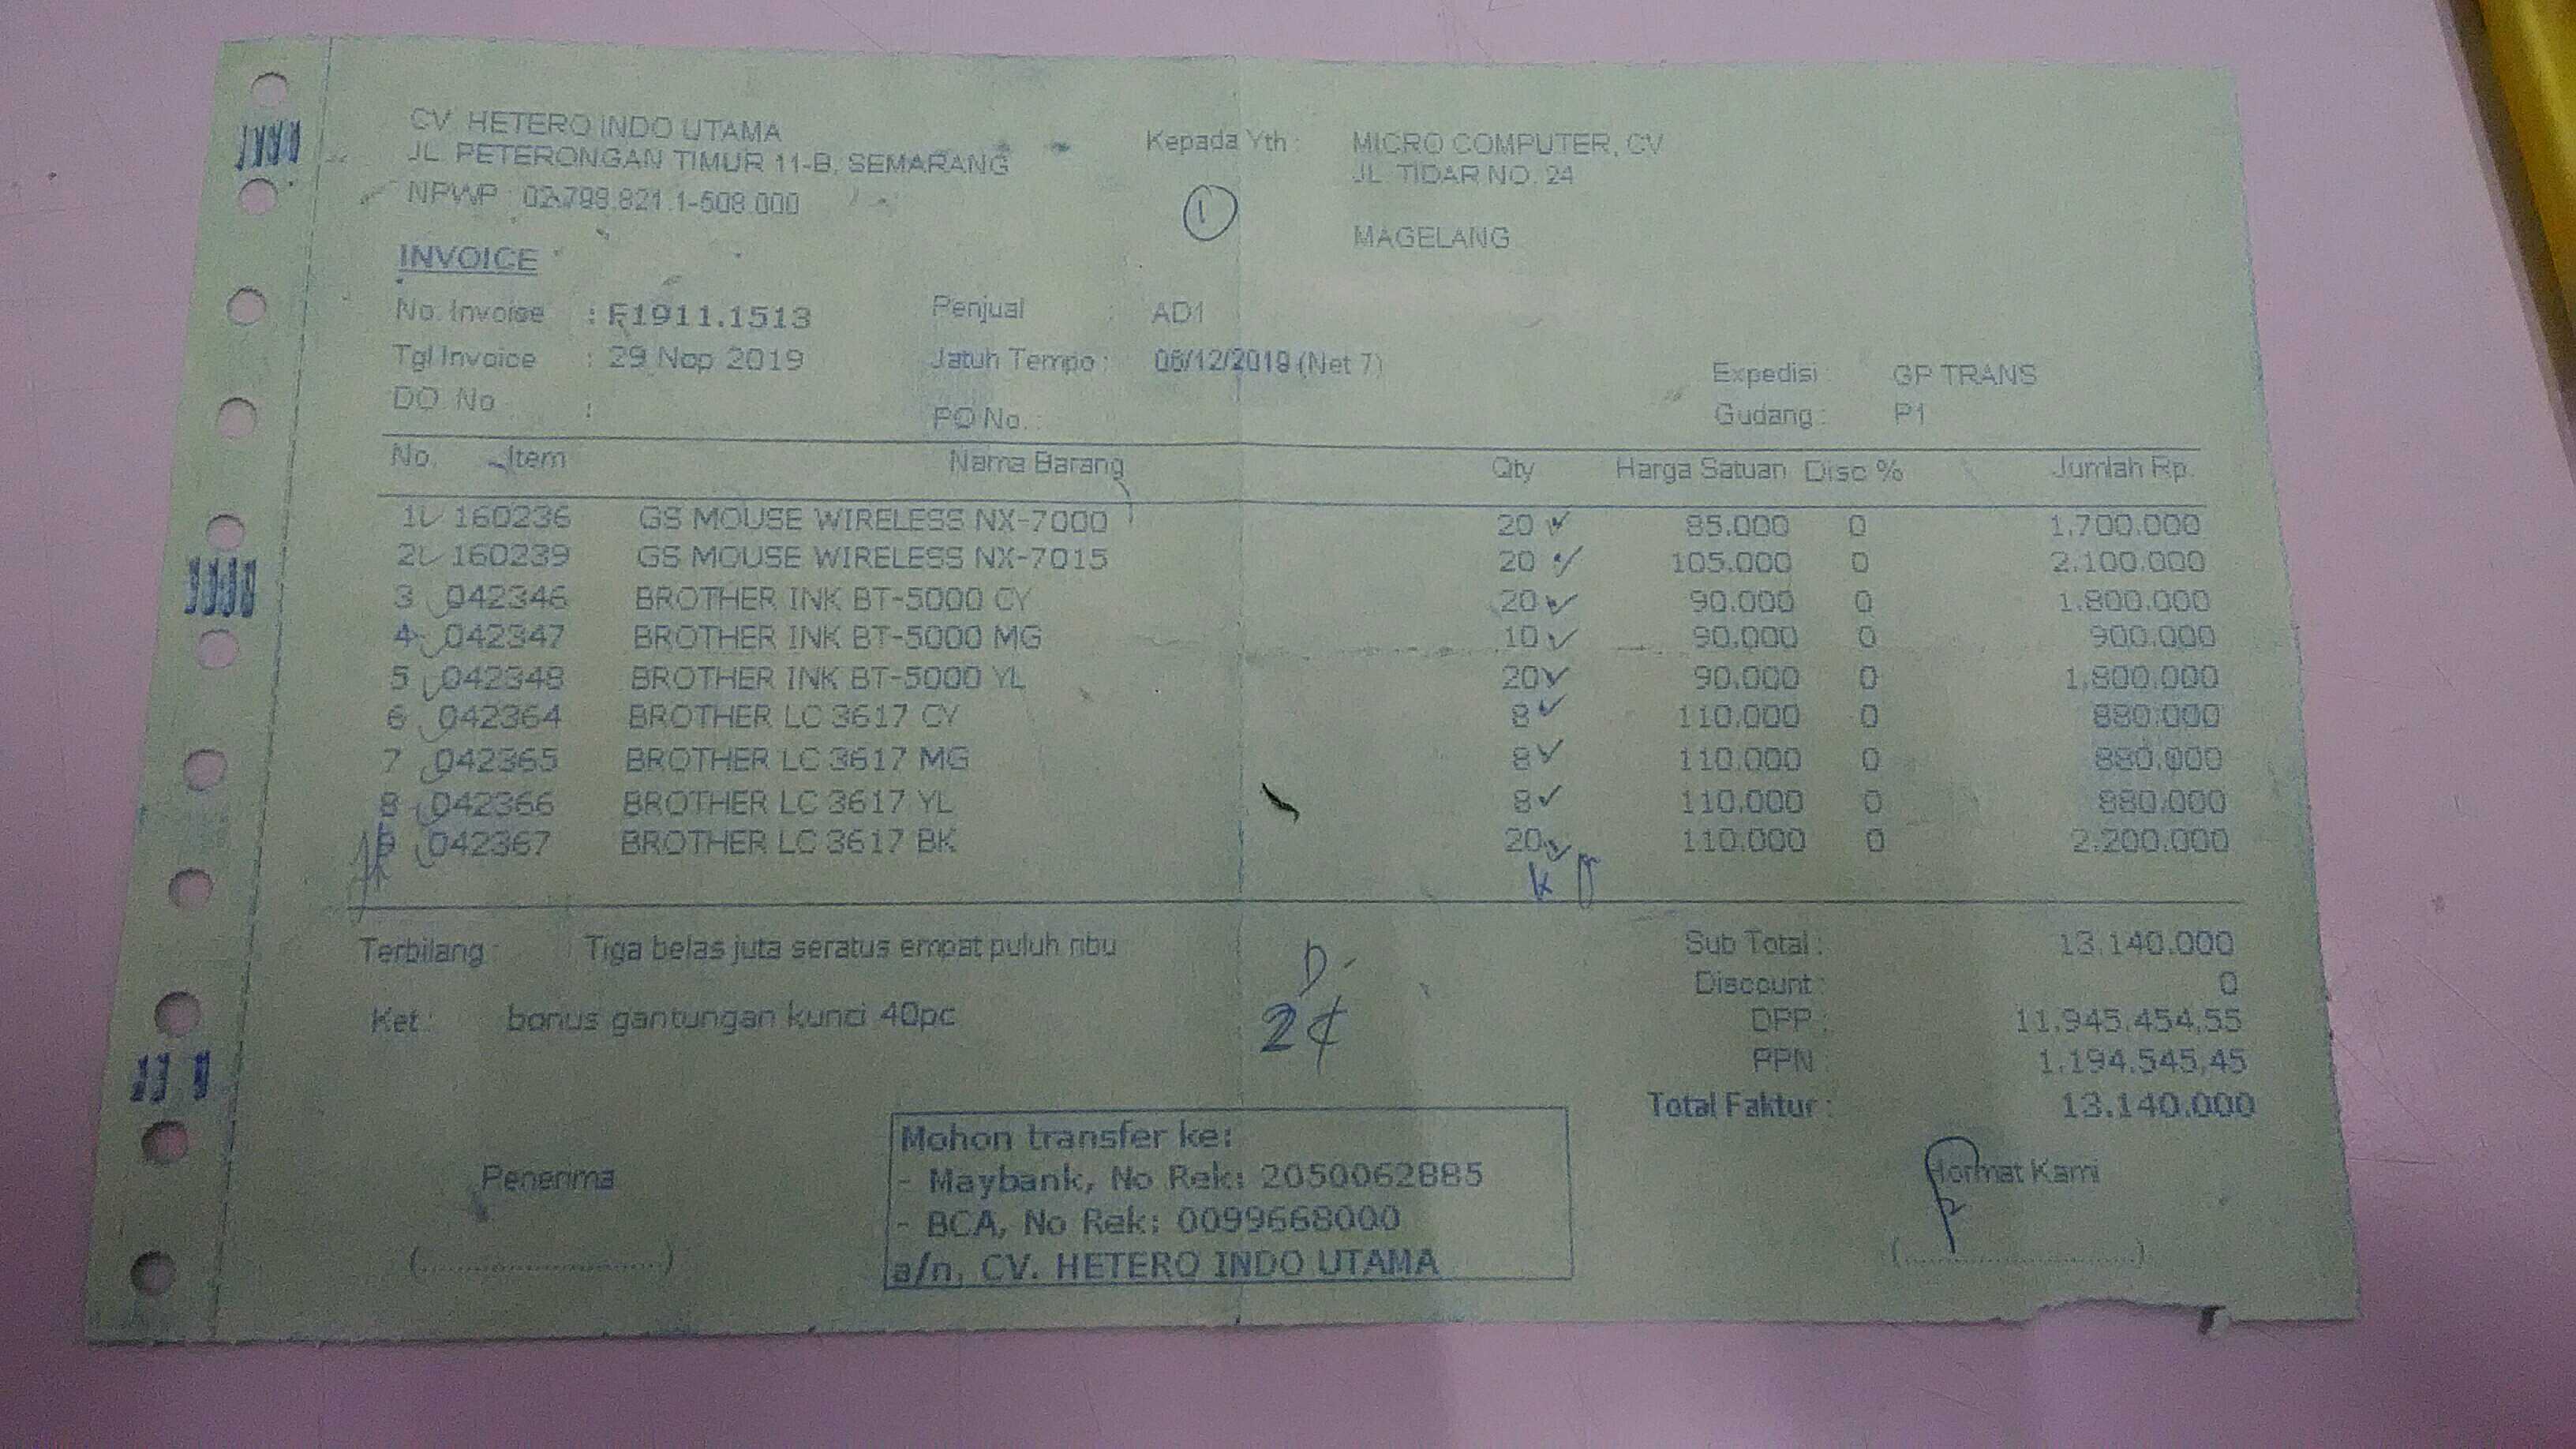 CV. HETERO INDO UTAMA
JL. PETERONGAN TIMUR 11-B, SEMARANG
NPWP : 02.798.821.1-508.000
Kepada Yth : MICRO COMPUTER, CV
JL. TIDAR NO. 24
MAGELANG
1
INVOICE
No. Invoice : F1911.1513 Penjual : AD1
Tgl Invoice : 29 Nop 2019 Jatuh Tempo : 06/12/2019 (Net 7) Expedisi : GP TRANS
DO. No : PO No. : Gudang : P1
No. Item Nama Barang Qty Harga Satuan Disc % Jumlah Rp.
1 160236 GS MOUSE WIRELESS NX-7000 20 85.000 0 1.700.000
2 160239 GS MOUSE WIRELESS NX-7015 20 105.000 0 2.100.000
3 042346 BROTHER INK BT-5000 CY 20 90.000 0 1.800.000
4 042347 BROTHER INK BT-5000 MG 10 90.000 0 900.000
5 042348 BROTHER INK BT-5000 YL 20 90.000 0 1.800.000
6 042364 BROTHER LC 3617 CY 8 110.000 0 880.000
7 042365 BROTHER LC 3617 MG 8 110.000 0 880.000
8 042366 BROTHER LC 3617 YL 8 110.000 0 880.000
9 042367 BROTHER LC 3617 BK 20 110.000 0 2.200.000
Terbilang : Tiga belas juta seratus empat puluh ribu
Ket : bonus gantungan kunci 40pc
Sub Total : 13.140.000
Discount : 0
DPP : 11.945.454,55
PPN : 1.194.545,45
Total Faktur : 13.140.000
Penerima
(........................)
Mohon transfer ke:
- Maybank, No Rek: 2050062885
- BCA, No Rek: 0099668000
a/n, CV. HETERO INDO UTAMA
Hormat Kami
(........................)